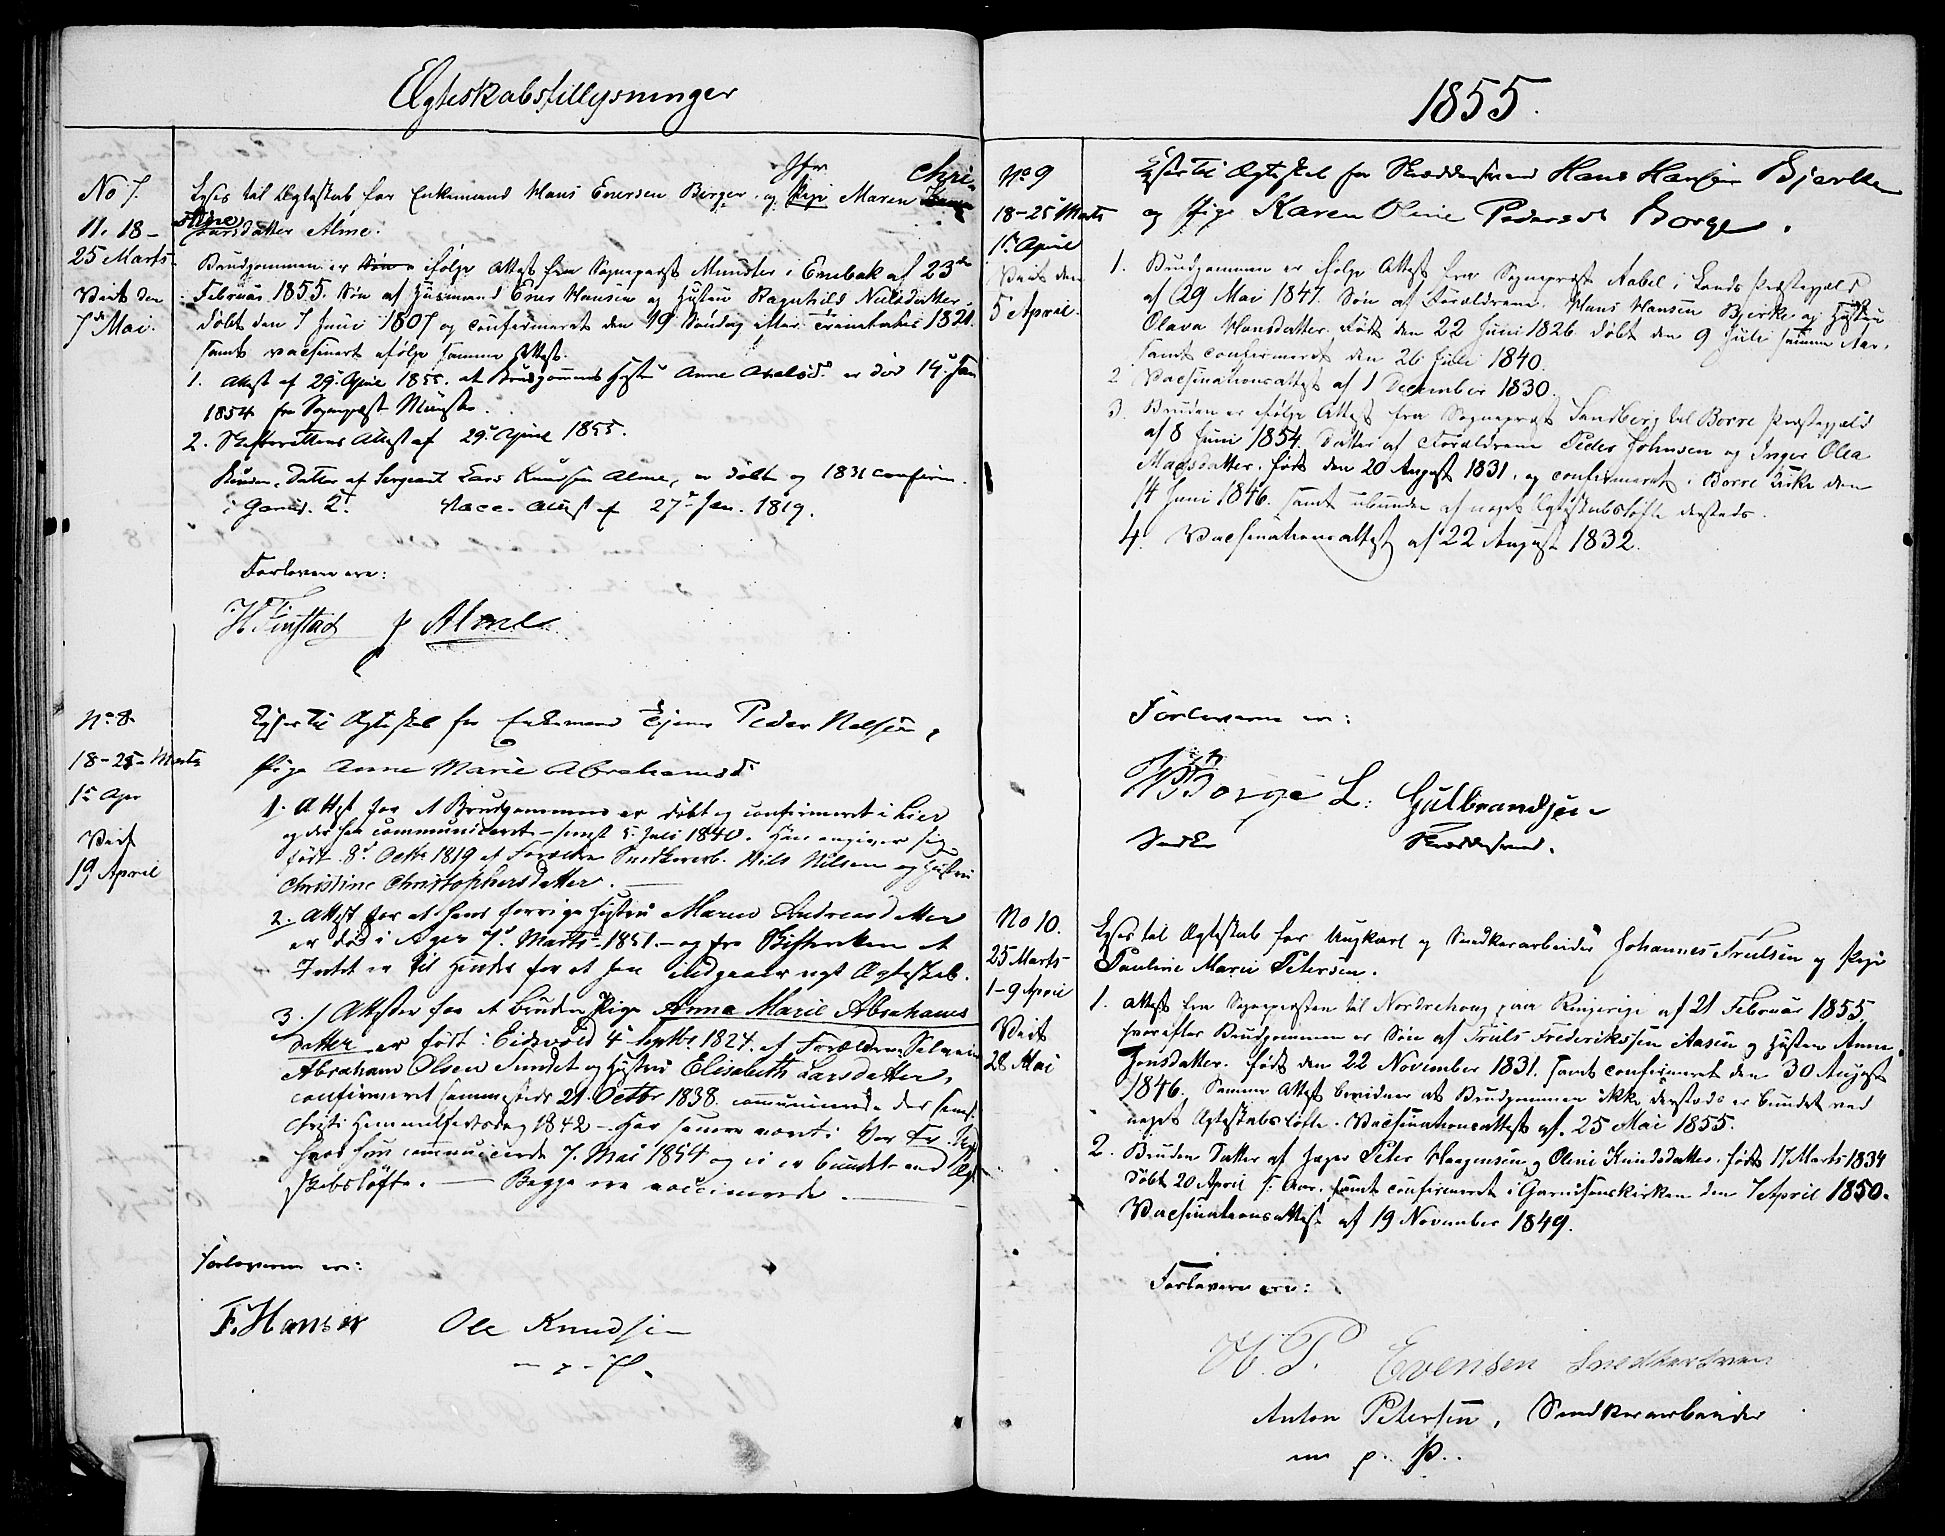 Ægteskabstillysninger
No 7.
11. 18-
25 Marts.
Viet den
7de Mai.
Jfr Chri-
Lyses til Ægteskab for Enkemand Hans Enersen Berger, og Pige Maren
stine
Larsdatter Alme.
Brudgommen er Søn ifølge Attest fra Sognepræst Munster i Enebak af 23de
Februar 1855. Søn af Huusmand Ener Hansen og Hustru Ragnhild Nielsdatter,
døbt den 7 Juni 1807 og confirmeret den 19 Søndag efter Trinitatis 1821
samt vacsineret ifølge samme Attest.
1. Attest af 29 April 1855 at Brudgommens Hustru Anne Axelsd. er død 14 Jan
1854 fra Sognepræst Munster.
2. Skifterettens Attest af 29 April 1855.
Bruden, Datter af Sergeant Lars Knudsen Alme, er døbt og 1831 confirm.
i Garnis. K. Vacc. Attest af 27 Jan. 1819.
Forlovere ere:
H Finstad P Alme
No 8
18-25 Marts
1ste Apr
Viet
19 April
Lyses til Ægteskab for Enkemand Peder Nelsen,
Pige Anne Marie Abrahamsd
1. Attest for at Brudgommen er døbt og confirmeret i Lier
og der har communiceret senest 5. Juli 1840. Han angiver sig
født 8de Octbr 1819 af Forældre Snedkerarb. Nils Nilsen og Hustru
Christine Christophersdatter.
2. Attest for at hans forrige Hustru Maren Andreasdatter
er død i Ager 7 Marts 1851 - og fra Skifteretten at
Intet er til Hinder for at han indgaaer nyt Ægteskab.
3. Attester for at Bruden Pige Anna Marie Abrahams
datter er født i Eidsvold 4 Septbr 1824 af Forældre Selveier
Abraham Olsen Sundet og Hustru Elisabeth Larsdatter,
confirmeret sammesteds 21 Octbr 1838 communicerede der senest
Christi Himmelfartsdag 1842 - Har senere været i Vor Fr.
hvor hun communicerede 7. Mai 1854 og ei er bundet ved Ægte
skabsløfte. - Begge ere vaccinerede.
Forlovere ere:
F. Hansen Ole Knudsen
m. p. P.
1855.
No 9
18-25 Marts
1ste April
Viet den
5 April.
Lyses til Ægteskab for Skræddersvend Hans Hansen Bjerke
og Pige Karen Oline Pedersd. Borge.
1. Brudgommen er ifølge Attest fra Sognepræst Aabel i Lands Præstegjæld
af 29 Mai 1847. Søn af Forældrene Hans Hansen Bjerke og Hustru
Olava Hansdatter. Født den 22 Juni 1826 døbt den 9 Juli samme Aar,
samt confirmeret den 26 Juli 1840.
2 Vacsinationsattest af 1 December 1830.
3. Bruden er ifølge Attest fra Sognepræst Sandberg til Borre Præstegjæld
af 8 Juni 1854. Datter af Forældrene Peder Johnsen og Inger Olea
Madsdatter, født den 20 August 1831. og confirmeret i Borre Kirke den
14 Juni 1846. samt ubunden af noget Ægteskabsløfte dersteds.
4. Vacsinationsattest af 22 August 1832.
Forlovere ere:
Borge L: Gulbrandsen
Snedker Skræddersvend.
No 10.
25 Marts
1-9 April
Viet
28 Mai
Lyses til Ægteskab for Ungkarl og Snedkerarbeider Johannes Trulsen og Pige
Pauline Marie Petersen.
1. Attest fra Sognepræsten til Norderhoug paa Ringerige af 21 Februar 1855
hvorefter Brudgommen er Søn af Truls Frederikssen Aasen og Hustru Anne
Jensdatter. født den 22 November 1831. samt confirmeret den 30 August
1846. Samme Attest bevidner at Brudgommen ikke dersteds er bundet ved
noget Ægteskabsløfte. Vacsinationsattest af 25 Mai 1855.
2. Bruden Datter af Jæger Peter Haagensen og Oline Knudsdatter. født 17 Marts 1834
døbt 20 April s: Aar. samt confirmeret i Garnisonskirken den 7 April 1850.
Vacsinationsattest af 19 November 1849.
Forlovere ere:
H. P. Evensen Snedkersvend
Anton Petersen, Snedkerarbeider
m. p. P.